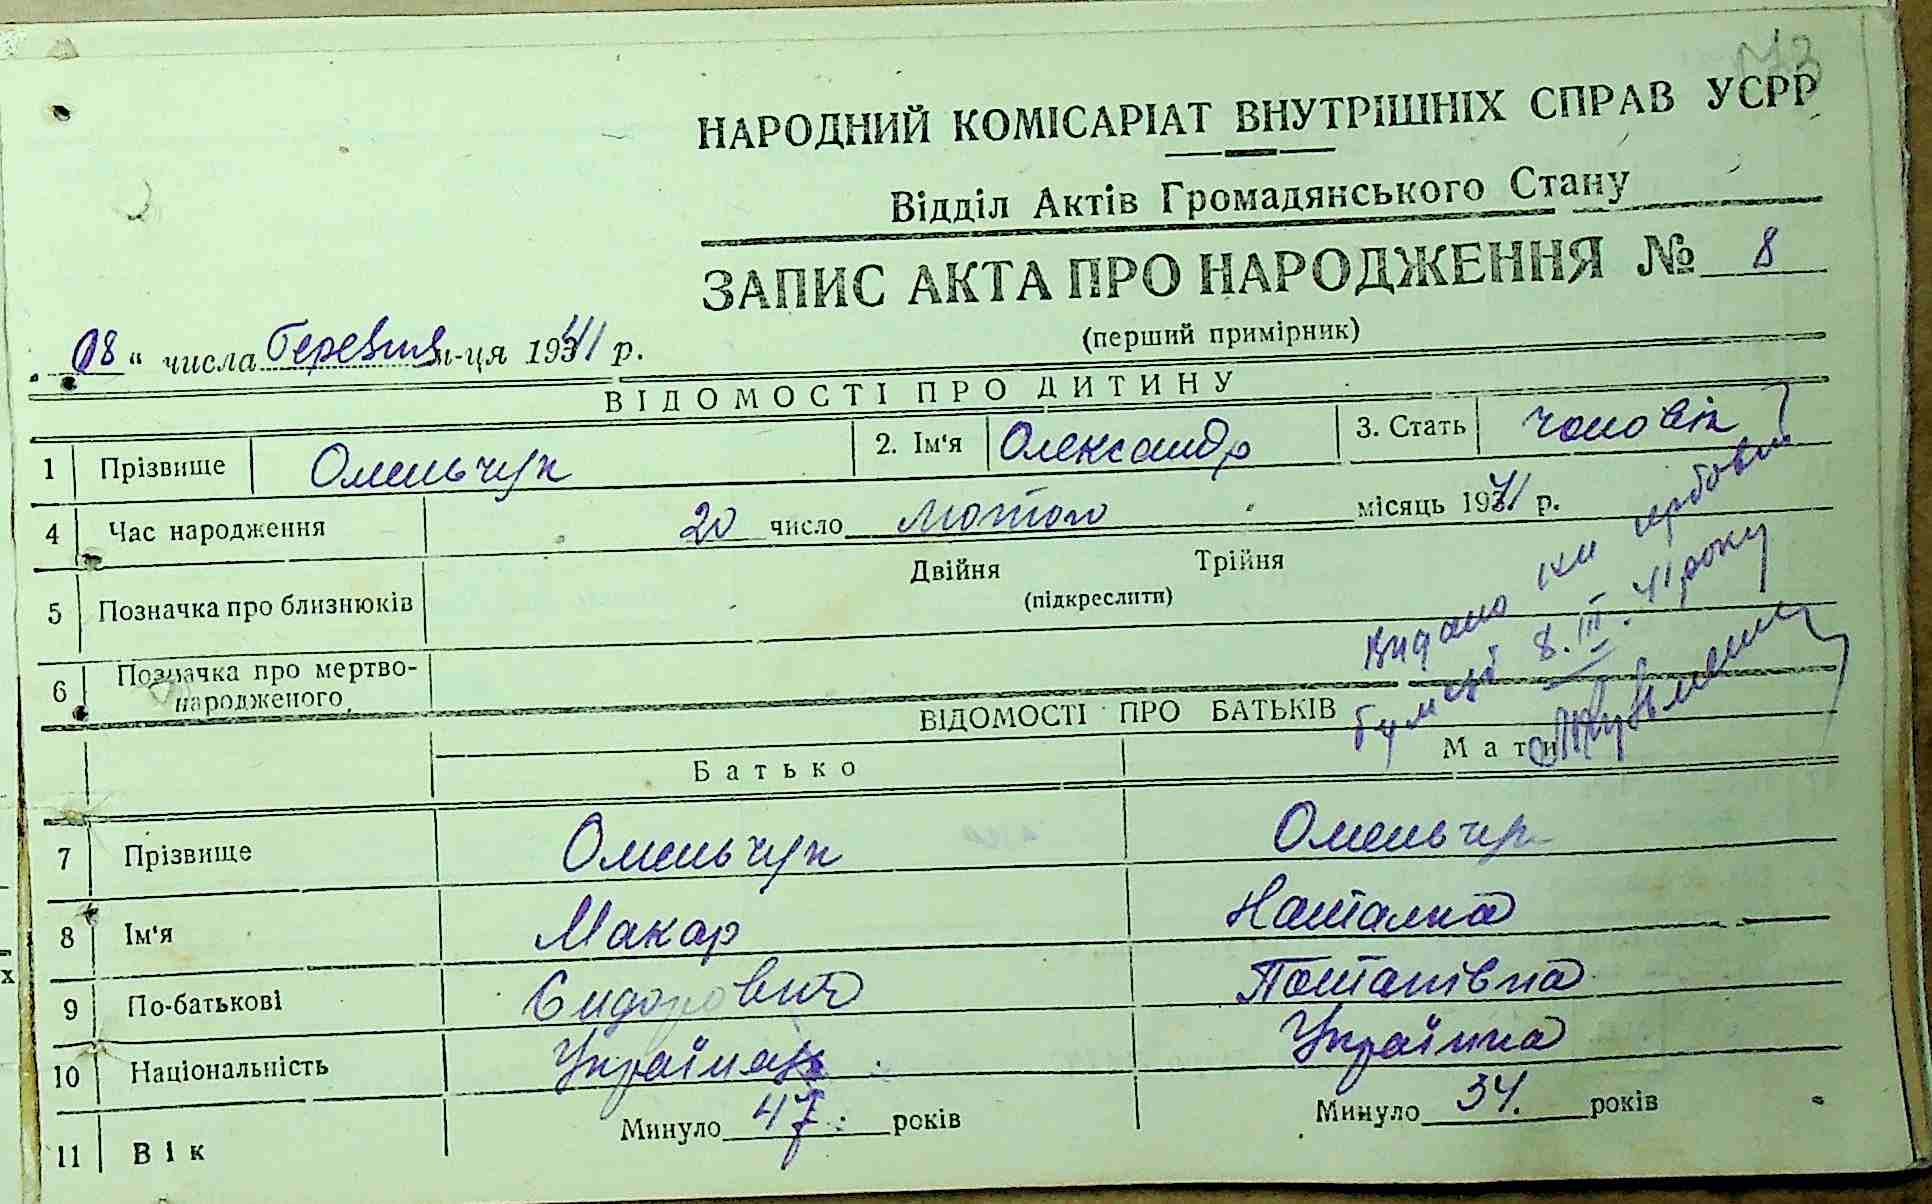 НАРОДНИЙ КОМІСАРІАТ ВНУТРІШНІХ СПРАВ УСРР
Відділ Актів Громадянського Стану
ЗАПИС АКТА ПРО НАРОДЖЕННЯ № 8
(перший примірник)
„08“ числа березня м-ця 1941 р.
ВІДОМОСТІ ПРО ДИТИНУ
1 Прізвище Омельчук 2. Ім'я Олександр 3. Стать чоловік
4 Час народження 20 число лютого місяць 1941 р.
5 Позначка про близнюків Двійня Трійня
(підкреслити)
6 Позначка про мертво-
народженого
Видано на гербовій
бумазі 8.III.41 року
ВІДОМОСТІ ПРО БАТЬКІВ
Батько Мати
7 Прізвище Омельчук Омельчук
8 Ім'я Макар Наталка
9 По-батькові Сидорович Потапівна
10 Національність Українець Українка
11 Вік Минуло 47 років Минуло 34. років
х